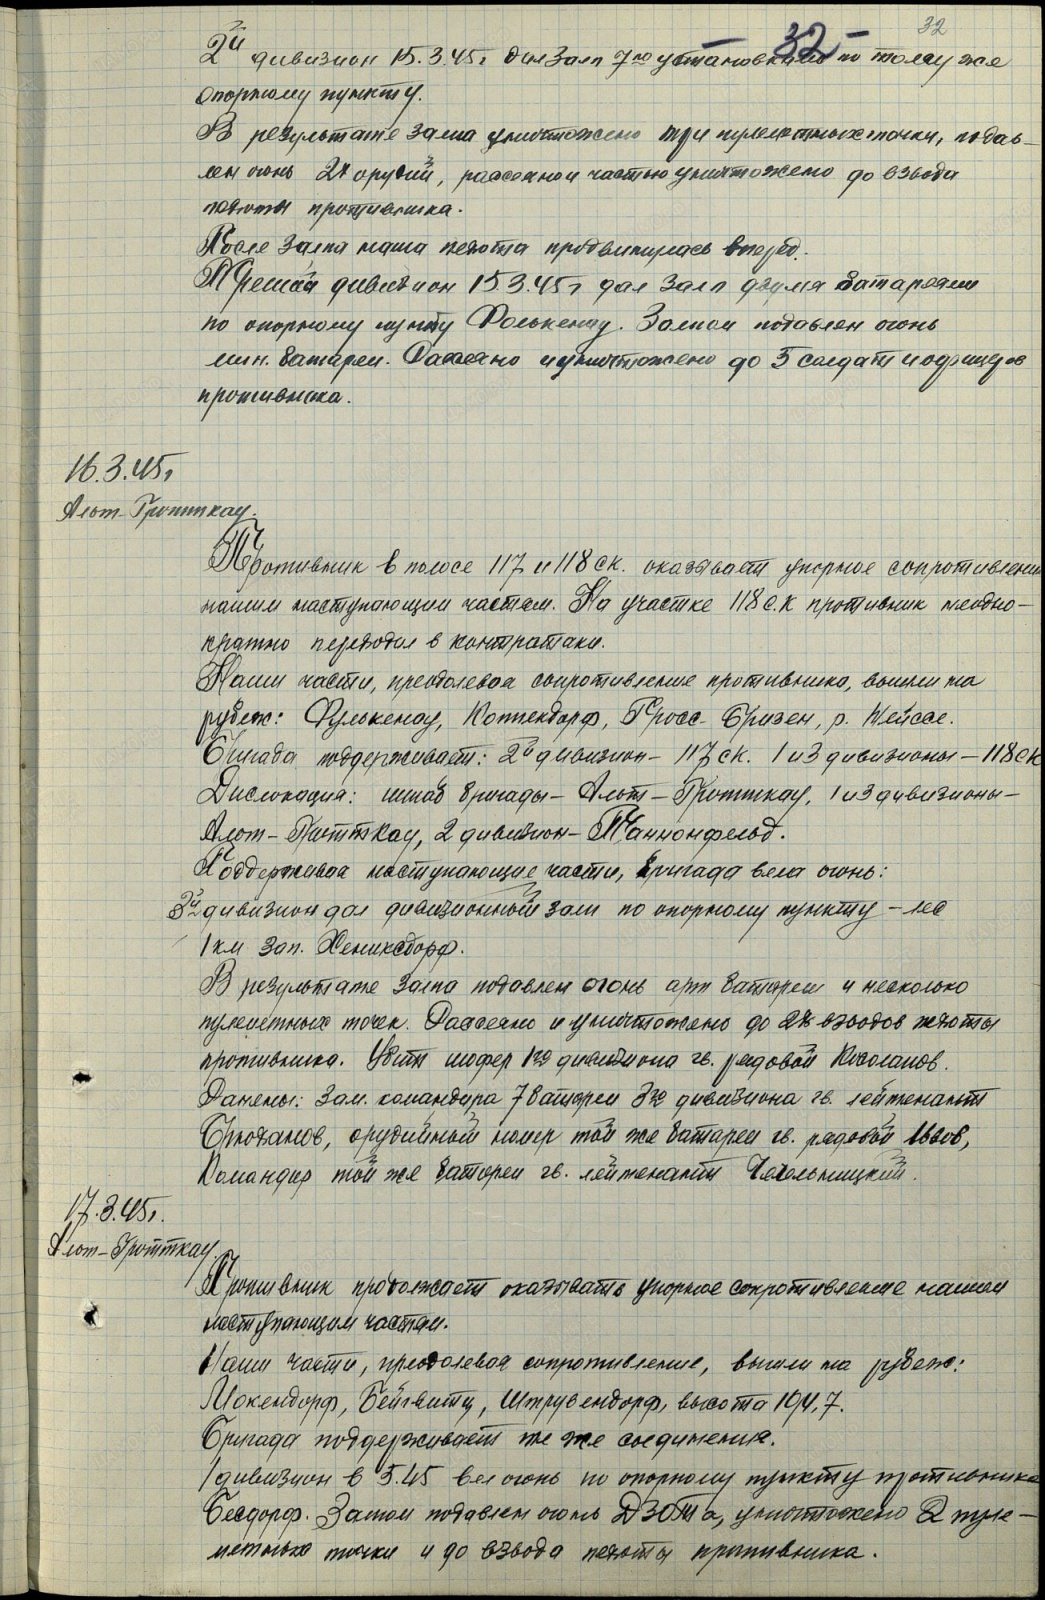 32
32 —
2й дивизион 15.3.45г дал залп 7ю установками по тому же
опорному пункту.
В результате залпа уничтожено три пулеметных точки, подав-
лен огонь 2х орудий, рассеяно и частью уничтожено до взвода
пехоты противника.
После залпа наша пехота продвинулась вперед.
Третий дивизион 15.3.45г дал залп двумя батареями
по опорному пункту Фолькенау. Залпом подавлен огонь
мин. батареи. Рассеяно и уничтожено до 5 солдат и офицеров
противника.
16.3.45г
Альт-Гротткау.
Противник в полосе 117 и 118 ск. оказывает упорное сопротивление
нашим наступающим частям. На участке 118 с.к противник неодно-
кратно переходил в контратаки.
Наши части, преодолевая сопротивление противника, вышли на
рубеж: Фулькенау, Коппендорф, Гросс-Бризен, р. Нейссе.
Бригада поддерживает: 2й дивизион - 117 ск. 1 и 3 дивизионы - 118 ск
Дислокация: штаб бригады - Альт-Гротткау, 1 и 3 дивизионы -
Альт-Гротткау, 2 дивизион - Таннонфельд.
Поддерживая наступающие части, бригада вела огонь:
3й дивизион дал дивизионный залп по опорному пункту - лес
1 км зап. Хениксдорф.
В результате залпа подавлен огонь арт батареи и несколько
пулеметных точек. Рассеяно и уничтожено до 2х взводов пехоты
противника. Убит шофер 1го дивизиона гв. рядовой
Ранены: зам. командира 7 батареи 3го дивизиона гв. лейтенант
орудийный номер той же батареи гв. рядовой
Командир той же батареи гв. лейтенант Чечельницкий.
17.3.45г.
Альт-Гротткау.
Противник продолжает оказывать упорное сопротивление нашим
наступающим частям.
Наши части, преодолевая сопротивление, вышли на рубеж:
Макендорф, Бейгвитц, Штрувендорф, высота 194,7.
Бригада поддерживает те же соединения.
1 дивизион в 5.45 вел огонь по опорному пункту противника
Бехдорф. Залпом подавлен огонь ДЗОТа, уничтожено 2 пуле-
метных точки и до взвода пехоты противника.